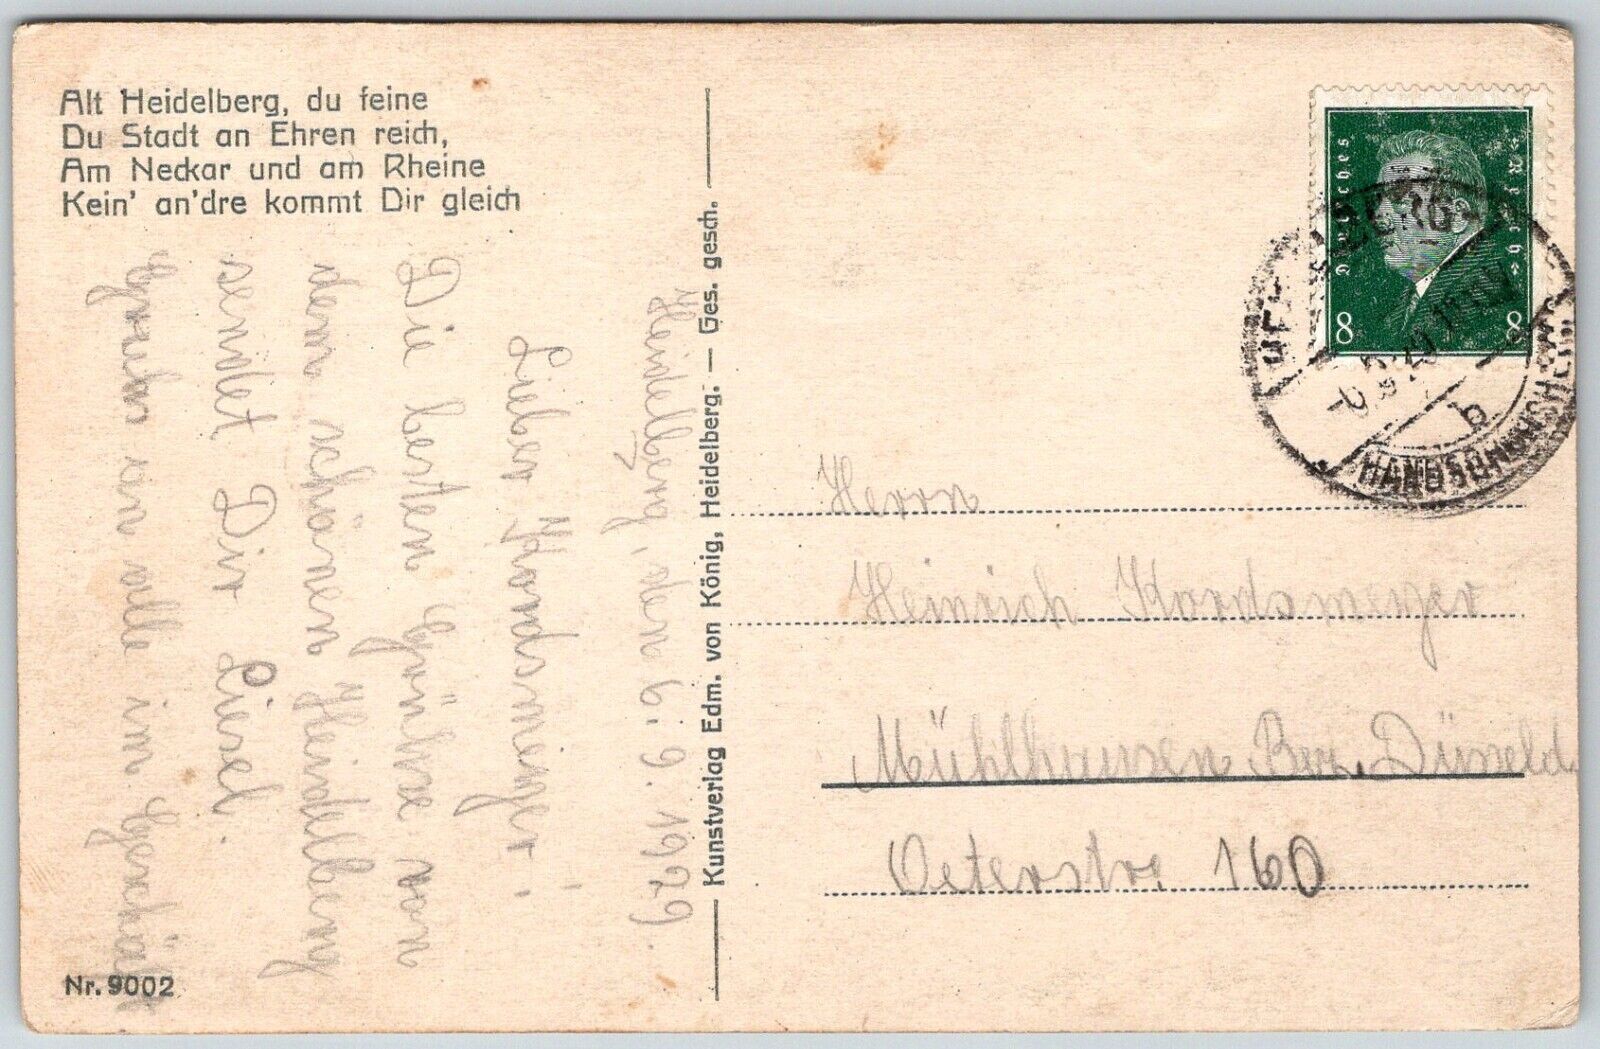 Alt Heidelberg, du feine
Du Stadt an Ehren reich,
Am Neckar und am Rheine
Kein' an'dre kommt Dir gleich
Heidelberg, den 6. 9. 1929.
Lieber Kordsmeyer!
Die besten Grüße von
dem schönen Heidelberg
sendet Dir Liesel.
Gruß an alle im Geschäft
Nr. 9002
Kunstverlag Edm. von König, Heidelberg. — Ges. gesch.
Deutsches Reich
8 8
HEIDELBERG-
HANDSCHUHSHEIM
b
Herrn
Heinrich Kordsmeyer
Mühlhausen Bez. Düsseld.
160